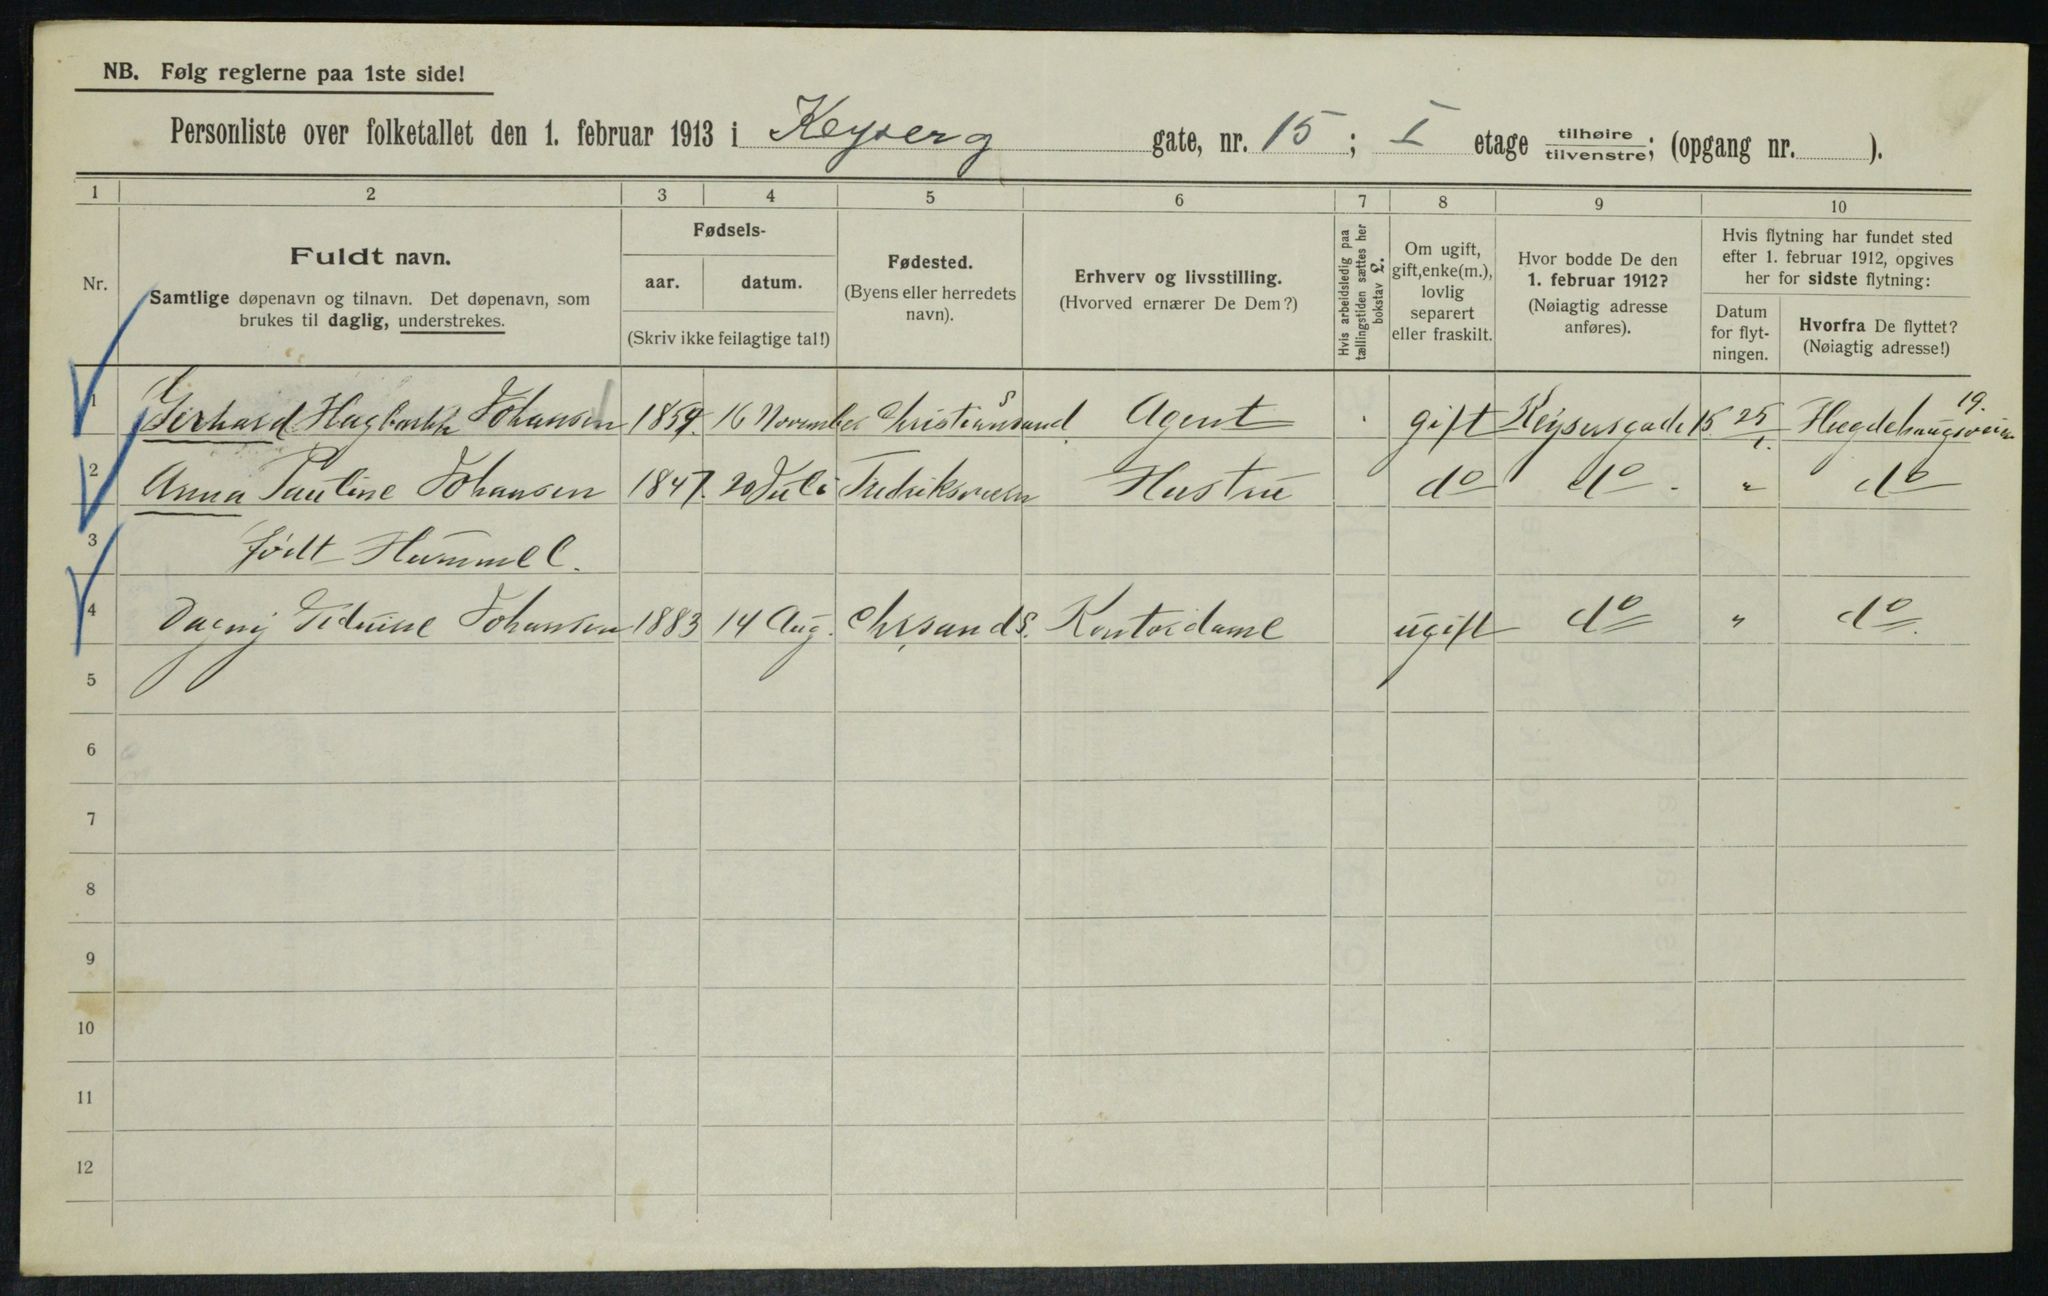 NB. Følg reglerne paa 1ste side!
Personliste over folketallet den 1. februar 1913 i Keyserg gate, nr. 15; I etage tilhøire/tilvenstre; (opgang nr. ).
1 2 3 4 5 6 7 8 9 10
Nr.
Fuldt navn.
Samtlige døpenavn og tilnavn. Det døpenavn, som
brukes til daglig, understrekes.
Fødsels-
aar. datum.
(Skriv ikke feilagtige tal!)
Fødested.
(Byens eller herredets
navn).
Erhverv og livsstilling.
(Hvorved ernærer De Dem?)
Hvis arbeidsledig paa
tællingstiden sættes her
bokstav L.
Om ugift,
gift, enke(m.),
lovlig
separert
eller fraskilt.
Hvor bodde De den
1. februar 1912?
(Nøiagtig adresse
anføres).
Hvis flytning har fundet sted
efter 1. februar 1912, opgives
her for sidste flytning:
Datum
for flyt-
ningen.
Hvorfra De flyttet?
(Nøiagtig adresse!)
1 Gerhard Hagbarth Johansen 16 November Christianssand Agent gift Keysersgade 15 25/1. Hegdehaugsveien 19.
2 Anna Pauline Johansen 1847. 20 Juli Fredriksværn Hustru do do „ do
3 født Hummel.
4 Dagny Johansen 1883 14 Aug. Chrsand S. Kontordame ugift do „ do
5
6
7
8
9
10
11
12